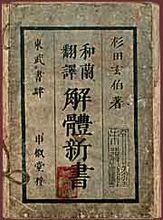 杉田玄伯著
和蘭
翻譯
解體新書
東武書肆 申椒堂梓